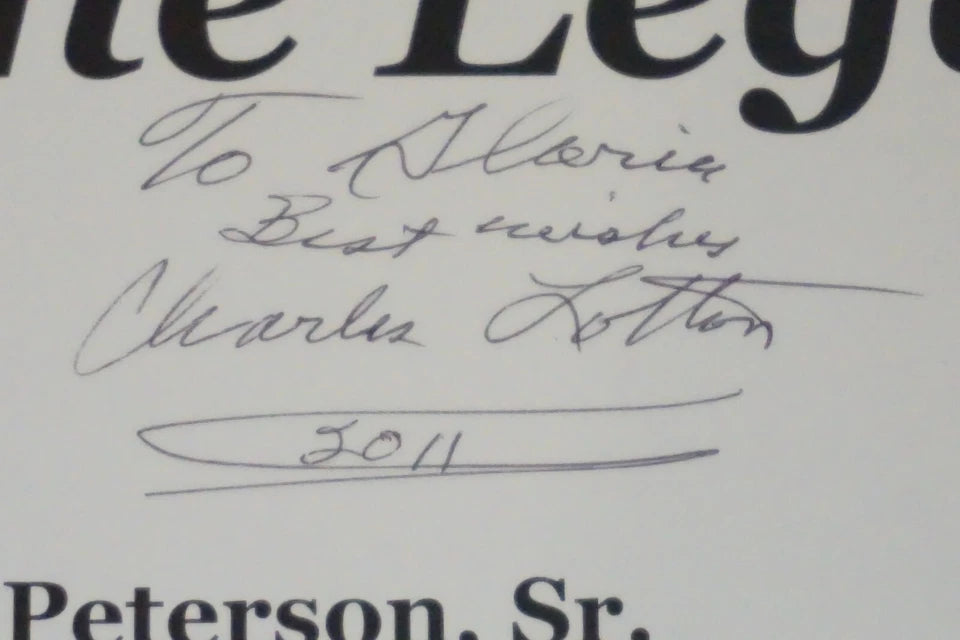 he Leg
To Gloria
Best wishes
Charles Lotton
2011
Peterson, Sr.